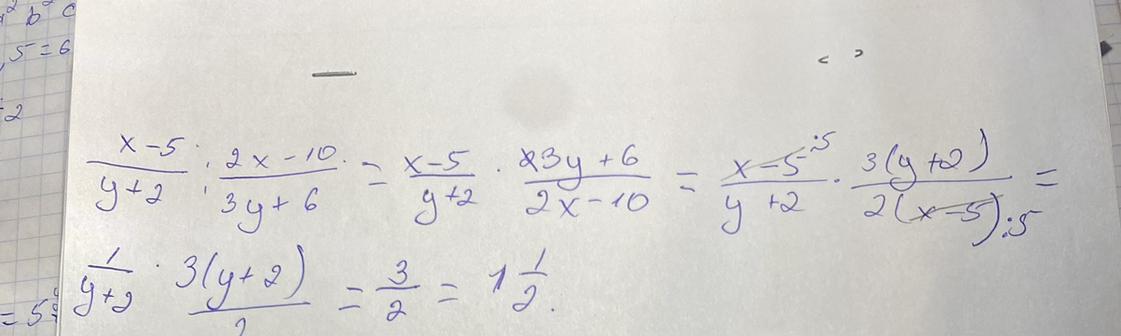 ² b² c
, 5 = 6
-2
< >
x-5/y+2 : 2x-10/3y+6 = x-5/y+2 · 3y+6/2x-10 = x-5 :5/y+2 · 3(y+2)/2(x-5) :5 =
1/y+2 · 3(y+2)/2 = 3/2 = 1 1/2.
= 5